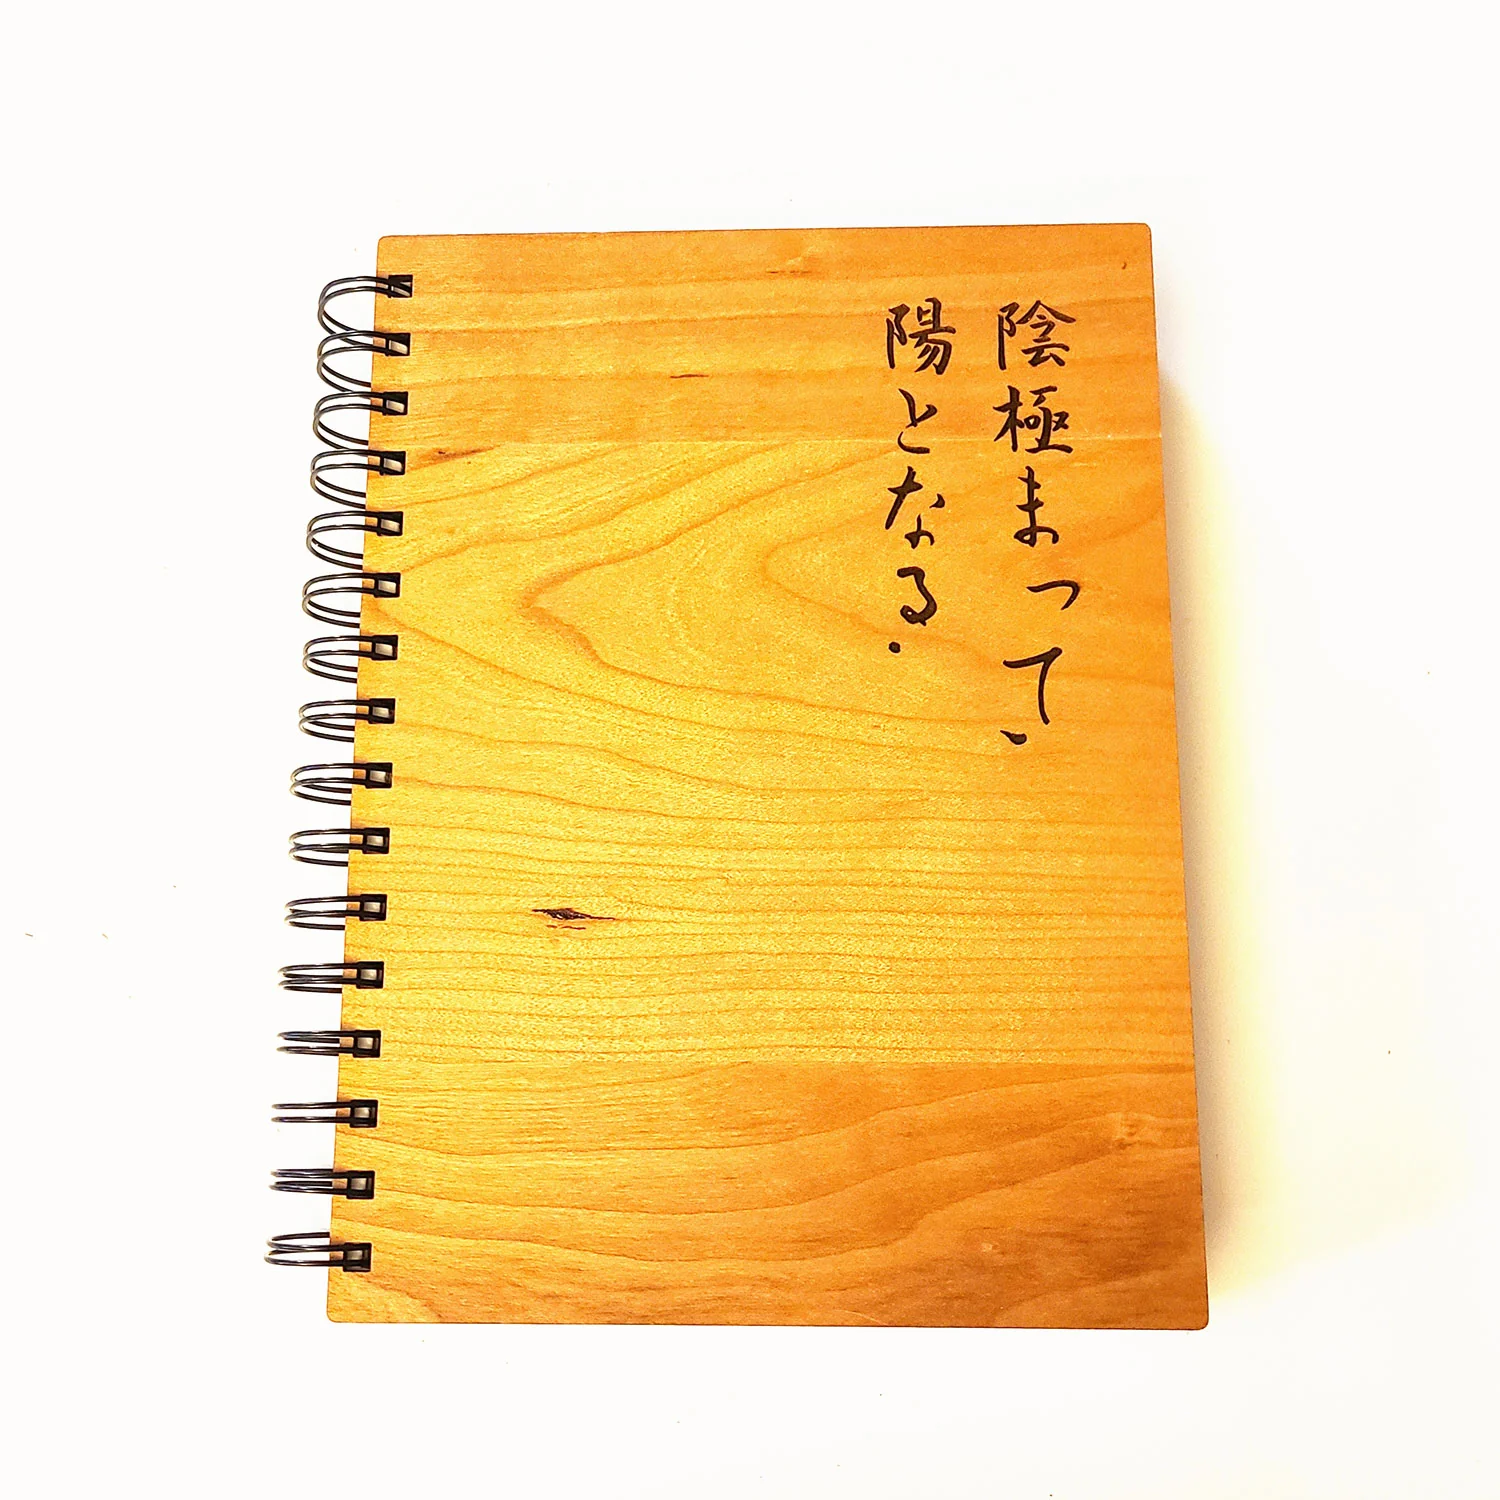 陰極まって、
陽となる.